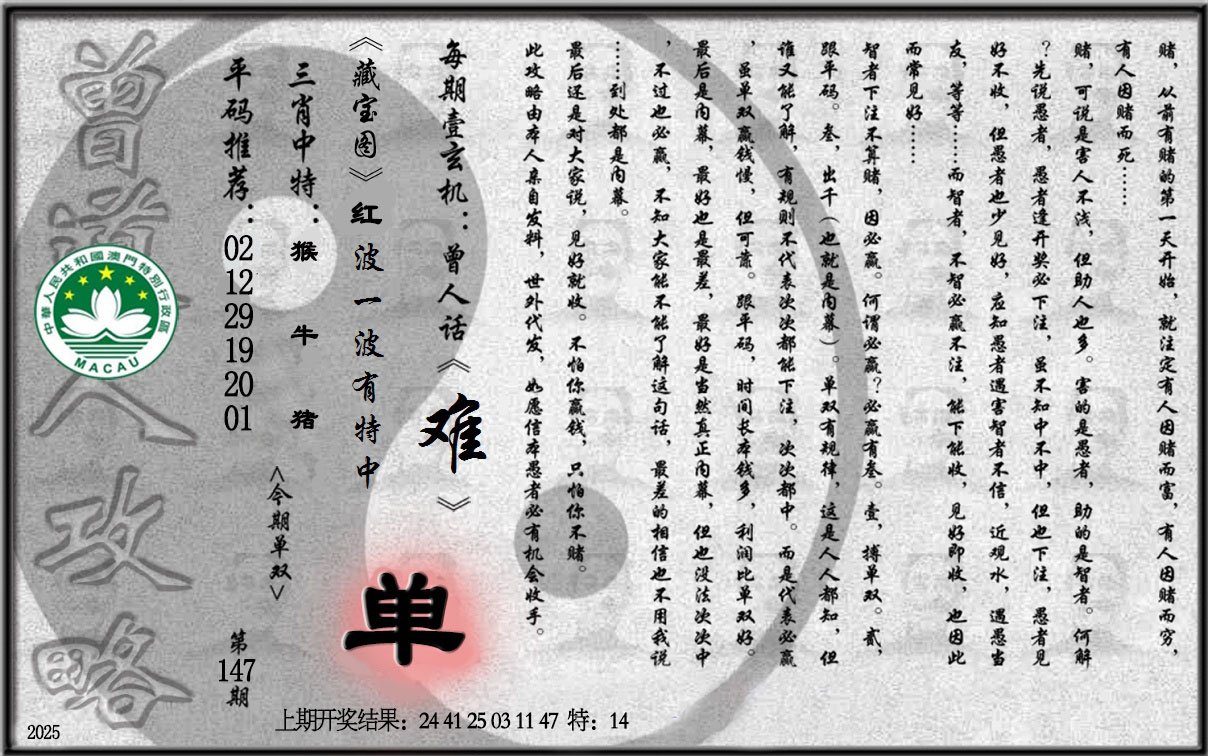 赌，从前有赌的第一天开始，就注定有人因赌而富，有人因赌而穷，
有人因赌而死……
赌，可说是害人不浅，但助人也多。害的是愚者，助的是智者。何解
？先说愚者，愚者逢开奖必下注，虽不知中不中，但也下注，愚者见
好不收，但愚者也少见好，应知愚者遇害智者不信，近观水，遇愚当
友，等等……而智者，不智必赢不注，能下能收，见好即收，也因此
而常见好……
智者下注不算赌，因必赢。何谓必赢？必赢有叁。壹，搏单双。贰，
跟平码。叁，出千（也就是内幕）。单双有规律，这是人人都知，但
谁又能了解，有规则不代表次次都能下注，次次都中。而是代表必赢
，虽单双赢钱慢，但可靠。跟平码，时间长本钱多，利润比单双好。
最后是内幕，最好也是最差，最好是当然真正内幕，但也没法次次中
，不过也必赢，不知大家能不能了解这句话，最差的相信也不用我说
……到处都是内幕。
最后还是对大家说，见好就收。不怕你赢钱，只怕你不赌。
此攻略由本人亲自发料，世外代发，如愿信本愚者必有机会收手。
每期壹玄机：曾人话《难》
《藏宝图》红波一波有特中
单
三肖中特：猴 牛 猪
<今期单双>
平码推荐：02 12 29 19 20 01
第147期
曾道人攻略
中華人民共和國澳門特別行政區
MACAU
上期开奖结果：24 41 25 03 11 47 特：14
2025